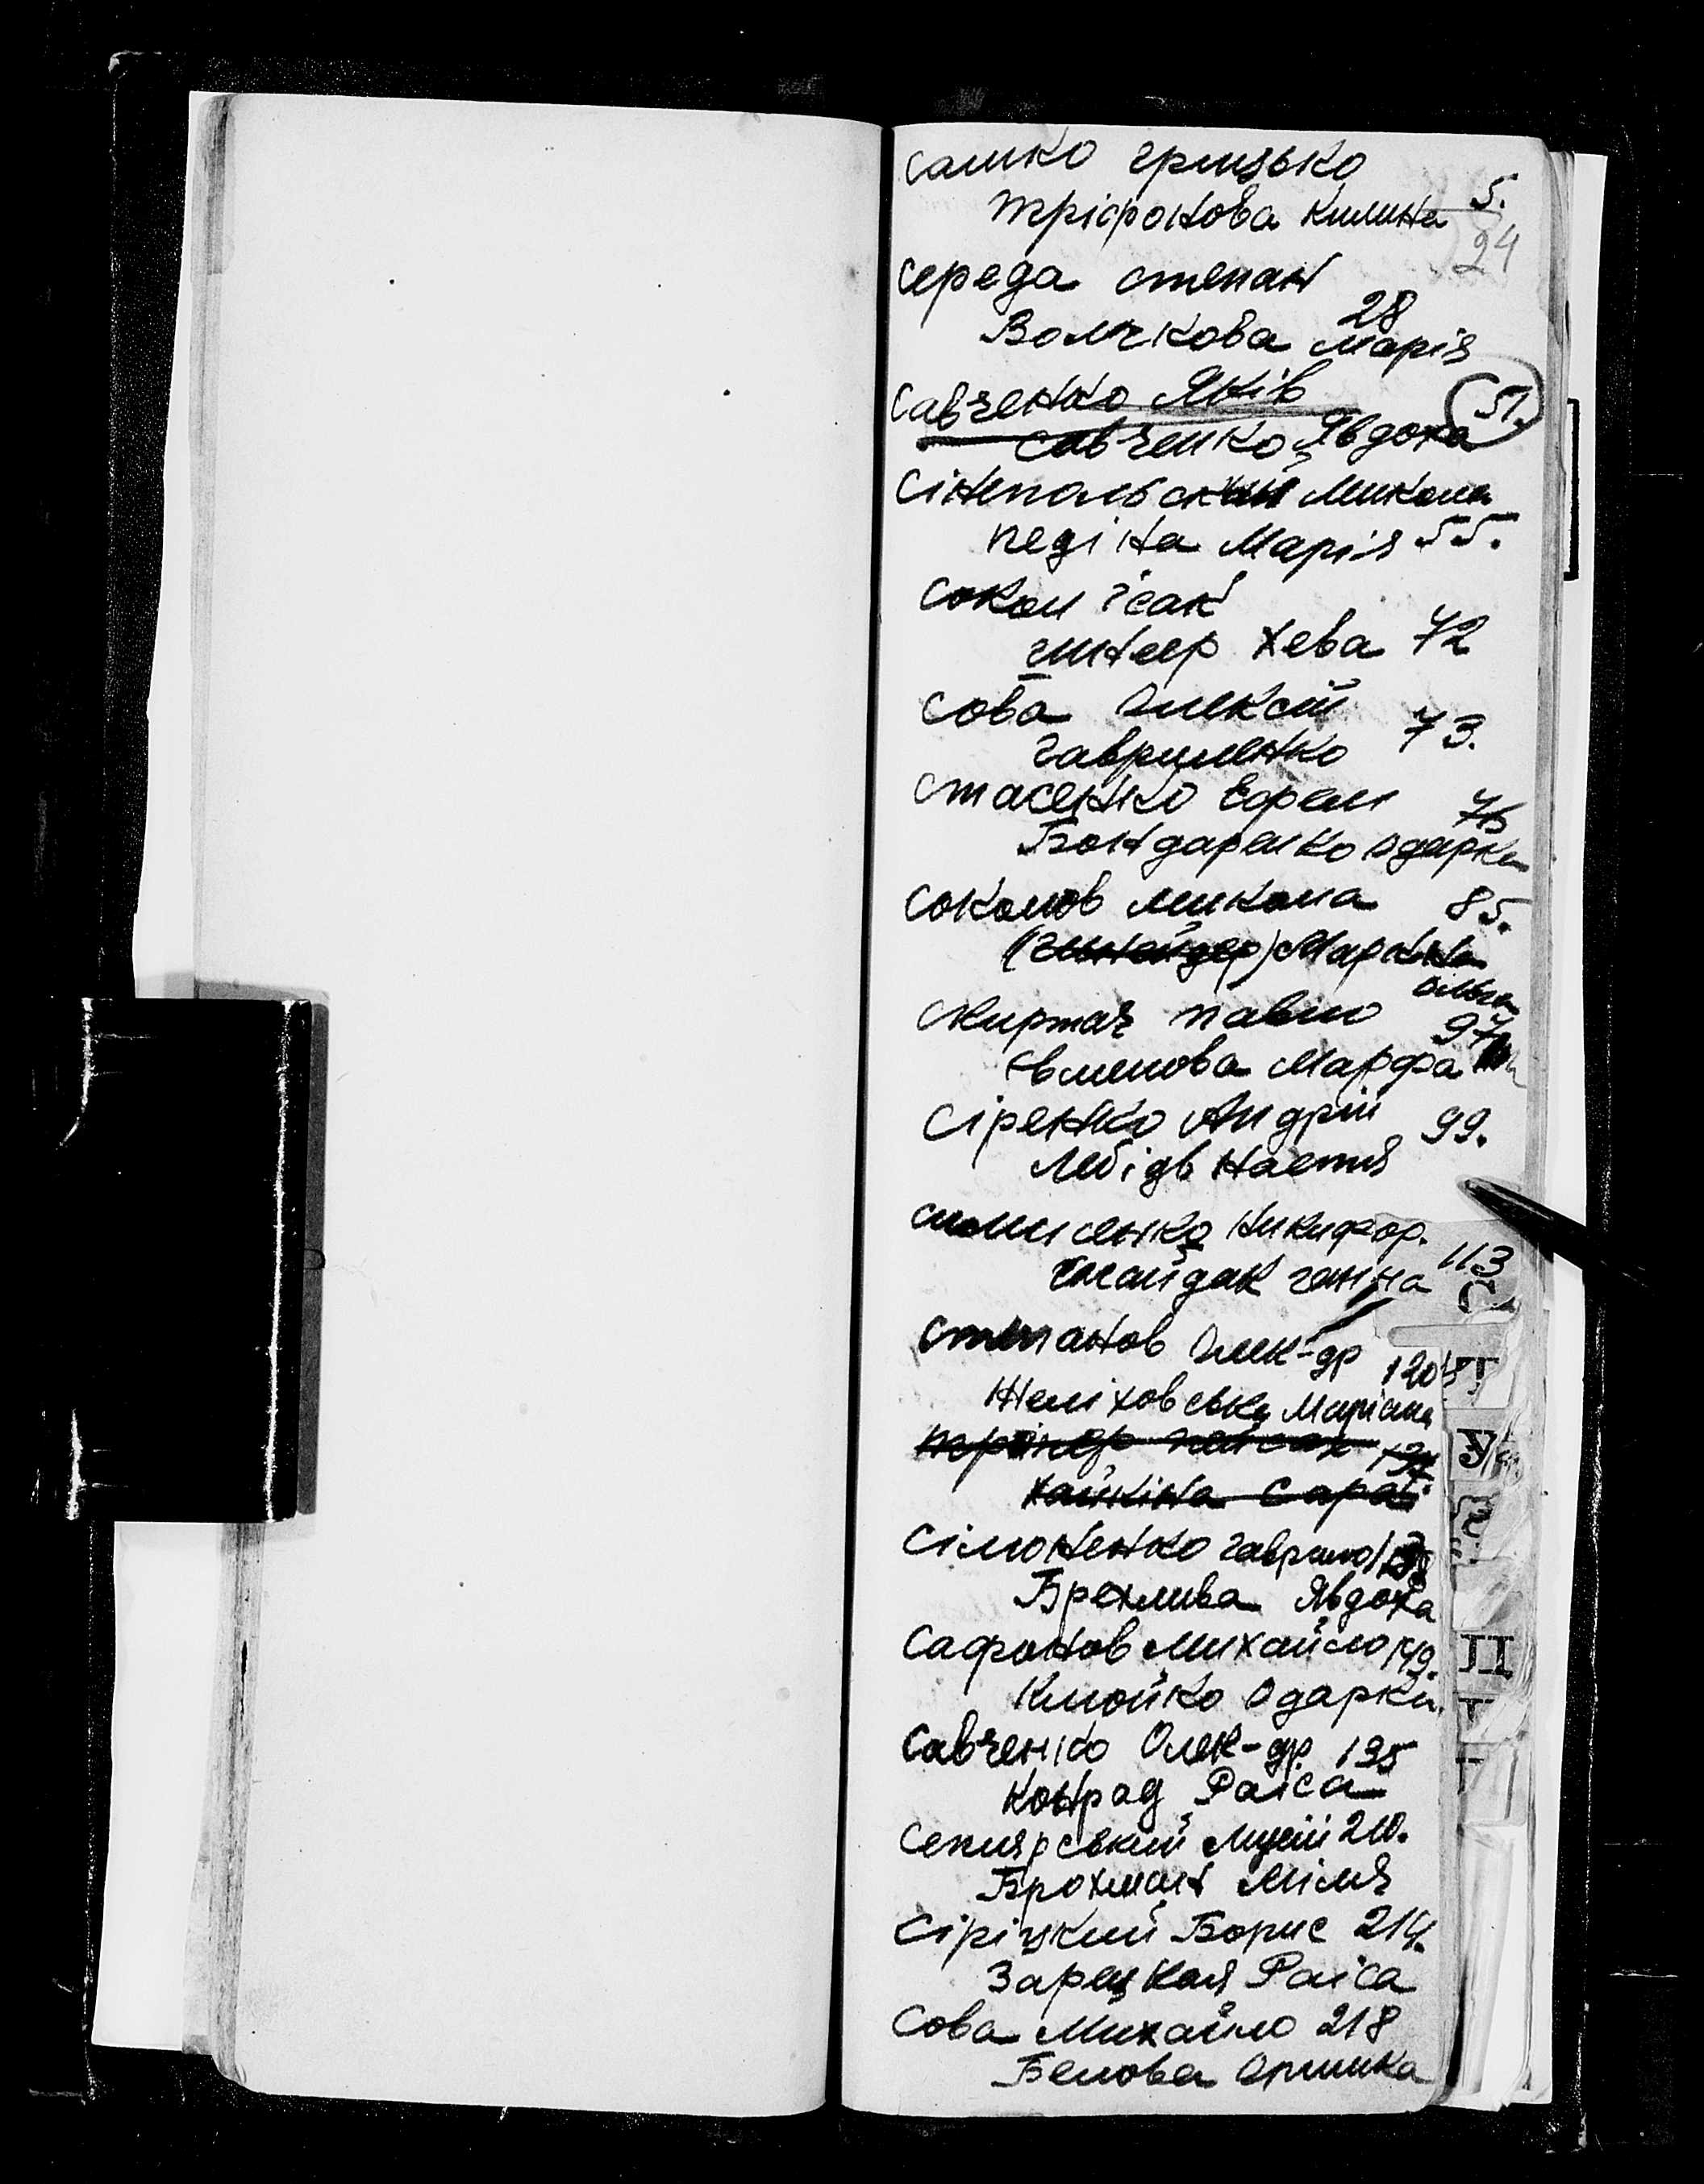 Сашко Грицько
Тріфонова Килина 5.
24
Середа Степан
28
Волчкова Марія
Савченко Яків 51.
Савченко Явдоха
Сінепольский Микола
Педіна Марія 55.
Сокол Ісак
Гинтер Хева 72
Сова Олексій
Гавриленко 73.
Стасенко Ефрем 76
Бондаренко Одарка
Соколов Микола 85.
(Шнайдер) Маркіна
Ольга
Скиртач Павло 97
Евменова Марфа
Сіренко Андрій 99.
Лебідь Настя
Симисенко Никифор. 113
Гайдак Ганна
С
Степанов Олек-др 120
Т
Желіховська Маріана
У
Хайкіна Сара
Сімоненко Гаврило
Брехлива Явдоха
Сафонов Михайло 149.
Клюйко Одарка
Савченко Олек-др. 195
Конрад Раіса
Секлярський Мусій 210.
Брохман Міля
Сіріцкий Борис 214.
Зарецкая Раіса
Сова Михайло 218
Белова Оришка